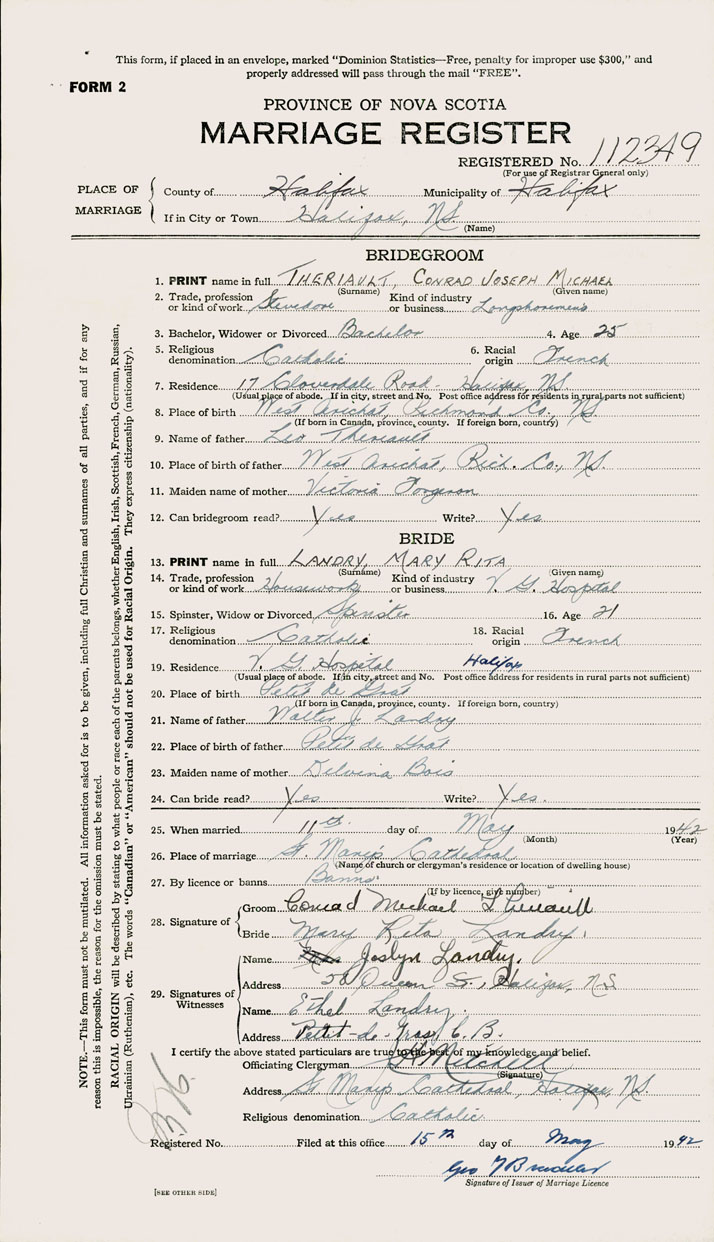 This form, if placed in an envelope, marked "Dominion Statistics—Free, penalty for improper use $300," and
properly addressed will pass through the mail "FREE".
FORM 2
PROVINCE OF NOVA SCOTIA
MARRIAGE REGISTER
REGISTERED No. 112349
(For use of Registrar General only)
PLACE OF MARRIAGE
County of Halifax Municipality of Halifax
If in City or Town Halifax, N.S.
(Name)
BRIDEGROOM
1. PRINT name in full THERIAULT, CONRAD JOSEPH MICHAEL
(Surname) (Given name)
2. Trade, profession or kind of work Stevedore Kind of industry or business Longshoremens
3. Bachelor, Widower or Divorced Bachelor 4. Age 25
5. Religious denomination Catholic 6. Racial origin French
7. Residence 17 Cloverdale Road - Halifax, N.S.
(Usual place of abode. If in city, street and No. Post office address for residents in rural parts not sufficient)
8. Place of birth West Arichat, Richmond Co., N.S.
(If born in Canada, province, county. If foreign born, country)
9. Name of father Leo Theriault
10. Place of birth of father West Arichat, Rich. Co., N.S.
11. Maiden name of mother Victoria
12. Can bridegroom read? Yes Write? Yes
BRIDE
13. PRINT name in full LANDRY, MARY RITA
(Surname) (Given name)
14. Trade, profession or kind of work Housework Kind of industry or business V. G. Hospital
15. Spinster, Widow or Divorced Spinster 16. Age 21
17. Religious denomination Catholic 18. Racial origin French
19. Residence V. G. Hospital Halifax
(Usual place of abode. If in city, street and No. Post office address for residents in rural parts not sufficient)
20. Place of birth Petit de Grat
(If born in Canada, province, county. If foreign born, country)
21. Name of father Walter J. Landry
22. Place of birth of father Petit de Grat
23. Maiden name of mother Delvina Bois
24. Can bride read? Yes Write? Yes.
25. When married 11th day of May 1942
(Month) (Year)
26. Place of marriage St. Mary's Cathedral
(Name of church or clergyman's residence or location of dwelling house)
27. By licence or banns Banns
(If by licence, give number)
28. Signature of
Groom Conrad Michael Theriault
Bride Mary Rita Landry.
29. Signatures of Witnesses
Name Joslyn Landry.
Address Queen St., Halifax, N.S.
Name Ethel Landry.
Address Petit-de-Grat C.B.
I certify the above stated particulars are true to the best of my knowledge and belief.
Officiating Clergyman Mitchell
(Signature)
Address St. Mary's Cathedral, Halifax, N.S.
Religious denomination Catholic
Registered No. Filed at this office 15th day of May 1942
Geo
Signature of Issuer of Marriage Licence
[SEE OTHER SIDE]
NOTE.—This form must not be mutilated. All information asked for is to be given, including full Christian and surnames of all parties, and if for any
reason this is impossible, the reason for the omission must be stated.
RACIAL ORIGIN will be described by stating to what people or race each of the parents belongs, whether English, Irish, Scottish, French, German, Russian,
Ukrainian (Ruthenian), etc. The words "Canadian" or "American" should not be used for Racial Origin. They express citizenship (nationality).